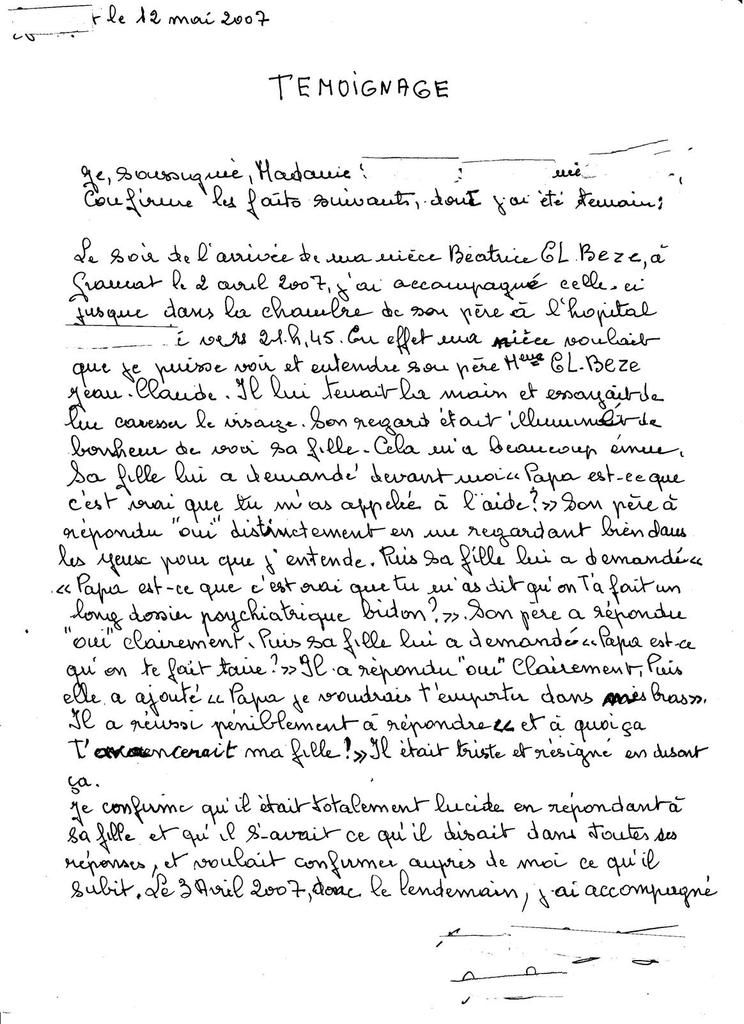 le 12 mai 2007
TEMOIGNAGE
Je, soussignée, Madame née
Confirme les faits suivants, dont j'ai été temain;
Le soir de l'arrivée de ma nièce Béatrice EL BEZE, à
Gramat le 2 avril 2007, j'ai accompagné celle-ci
jusque dans la chambre de son père à l'hopital
vers 21.h,45. En effet ma nièce voulait
que je puisse voir et entendre son père EL-BEZE
Jean-Claude. Il lui tenait la main et essayait de
lui caresser le visage. Son regard était illuminé de
bonheur de voir sa fille. Cela m'a beaucoup émue.
Sa fille lui a demandé devant moi « Papa est-ce que
c'est vrai que tu m'as appelée à l'aide? » Son père à
répondu "oui" distinctement en me regardant bien dans
les yeux pour que j'entende. Puis sa fille lui a demandé «
« Papa est-ce que c'est vrai que tu m'as dit qu'on t'a fait un
long dossier psychiatrique bidon? ». Son père a répondu
"oui" clairement. Puis sa fille lui a demandé « Papa est-ce
qu'on te fait taire? » Il a répondu "oui" clairement, Puis
elle a ajouté « Papa je voudrais t'emporter dans mes bras ».
Il a réussi péniblement à répondre « et à quoi ça
t'avancerait ma fille! » Il était triste et résigné en disant
ça.
Je confirme qu'il était totalement lucide en répondant à
sa fille et qu'il s'avait ce qu'il disait dans toutes ses
réponses, et voulait confirmer auprès de moi ce qu'il
subit. Le 3 Avril 2007, donc le lendemain, j'ai accompagné